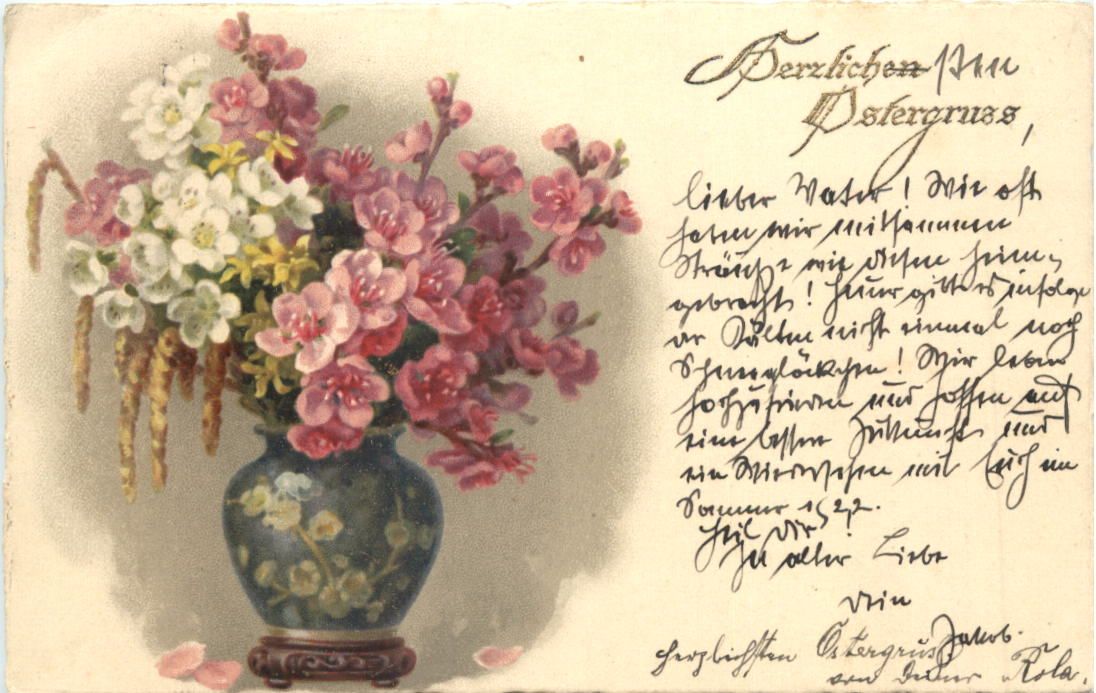 Herzlichen sten
Ostergruss,
lieber Vater! Wie oft
haben wir mitsammen
Sträuße wie diesen heim-
gebracht! Heuer gibt es infolge
der Kälten nicht einmal noch
Schneeglöckchen! Wir leben
hochzufrieden und hoffen auf
eine bessere Zukunft und
ein Wiedersehen mit Euch im
Sommer 1922.
Heil Dir!
In alter Liebe
Dein
Jakob.
Herzlichsten Ostergruß
von Deiner Rosa.